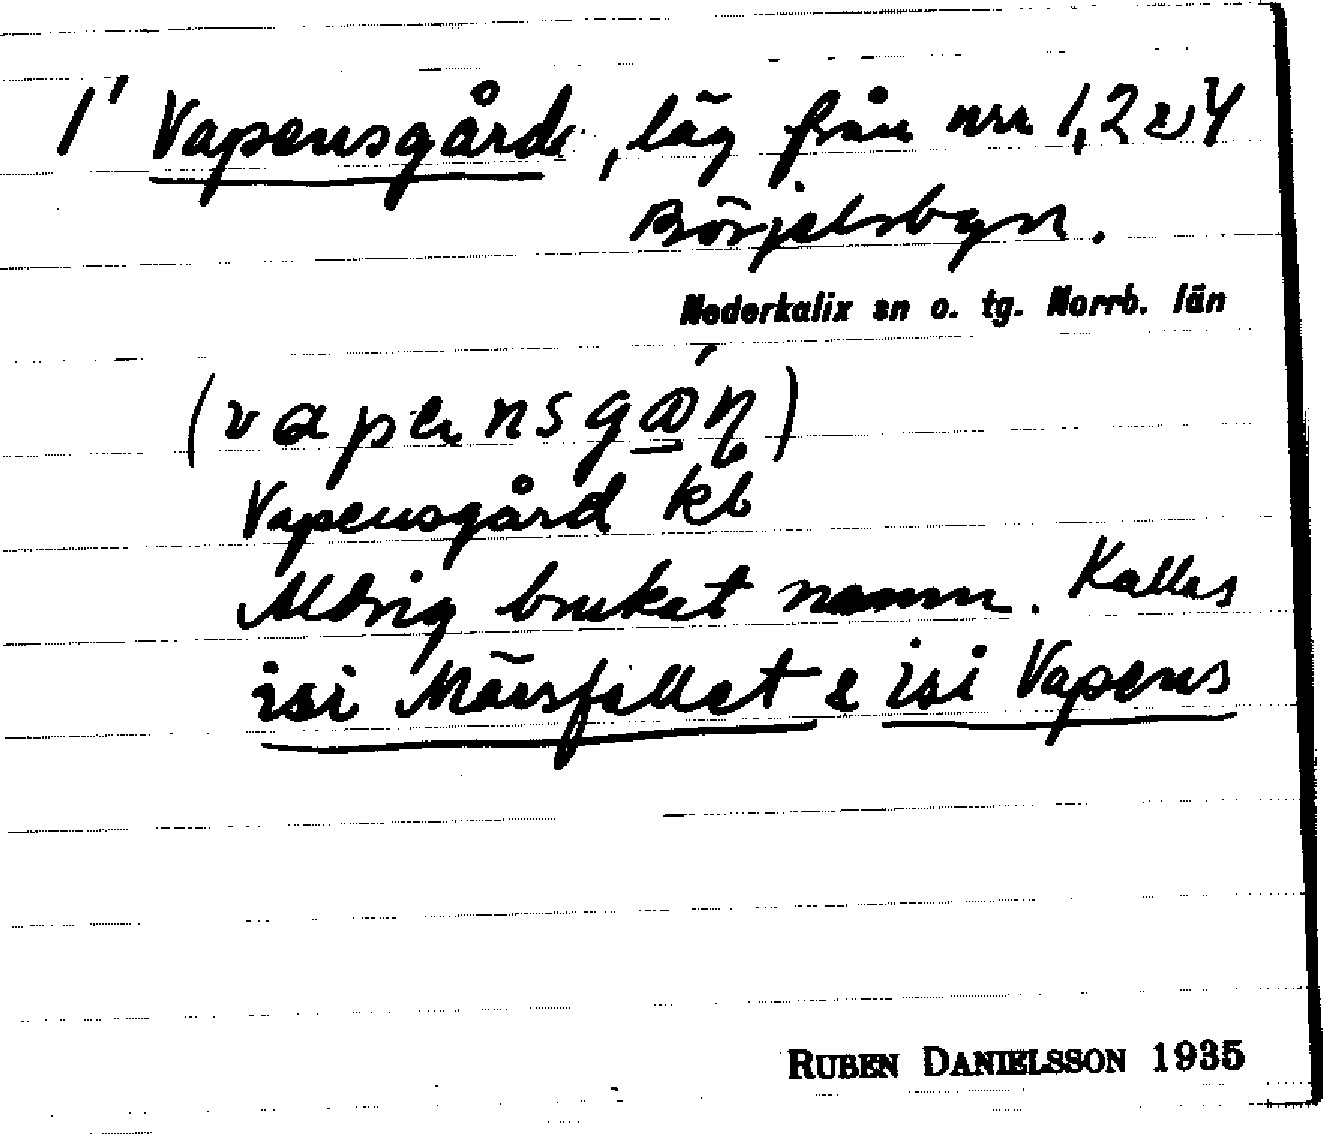 1' Vapensgård, läg från nrr 1, 2 o 4
Börjelsbyn.
Nederkalix sn o. tg. Norrb. län
Vapensgård kb
Aldrig brukat namn. Kallas
isi Månsfället l isi Vapens
RUBEN DANIELSSON 1935